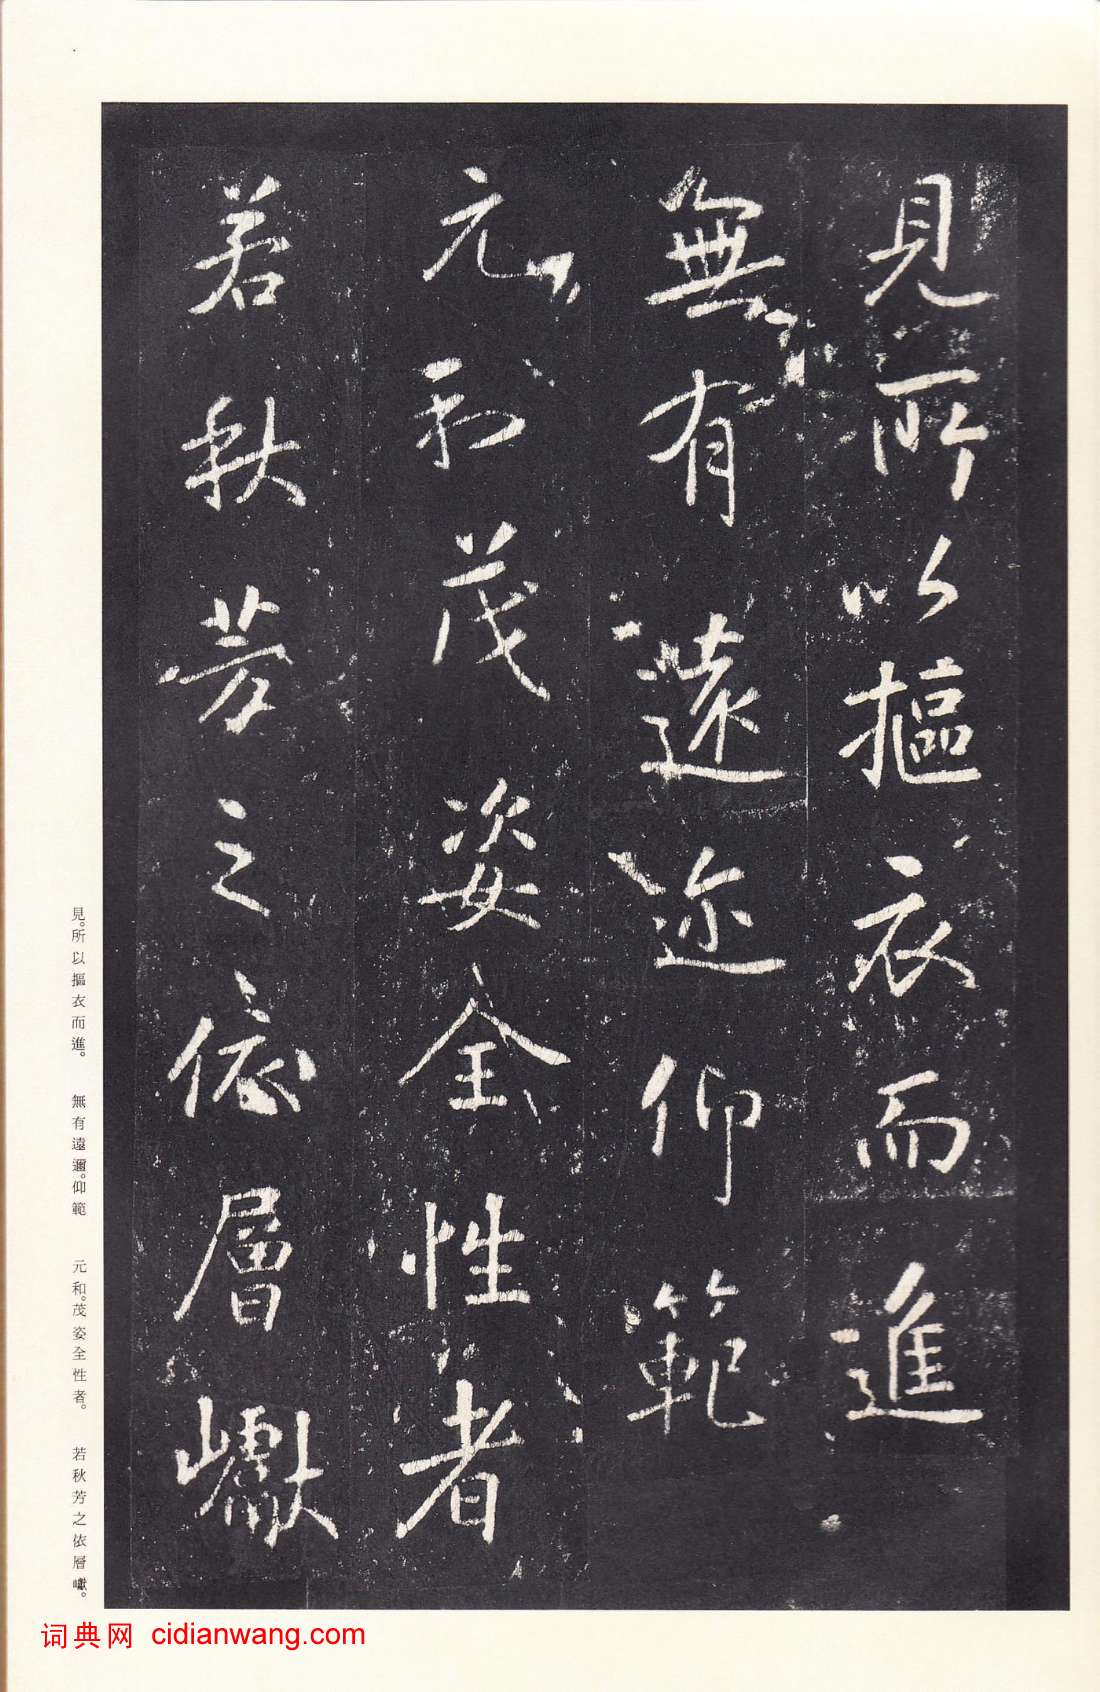 見所以摳衣而進
無有遠迩仰範
元和茂姿全性者
若秋芳之依層巘
見。所以摳衣而進。 無有遠邇。仰範 元和。茂姿全性者。 若秋芳之依層巘。
词典网 cidianwang.com